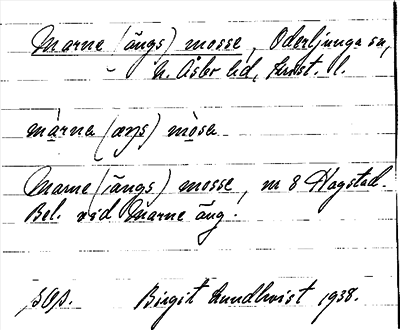 Marne (ängs) mosse, Oderljunga sn,
N. Åsbo hd, Krist. l.
màrna (æŋs) mòsa
Marne (ängs) mosse, nr 8 Hagstad.
Bel. vid Marne äng.
Birgit Lundkvist 1938.